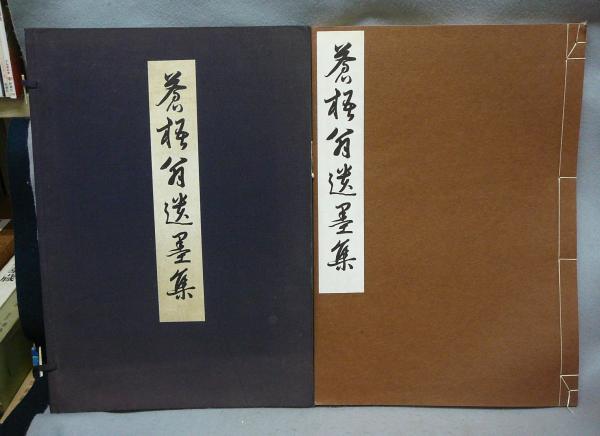 蒼梧翁遺墨集
蒼梧翁遺墨集